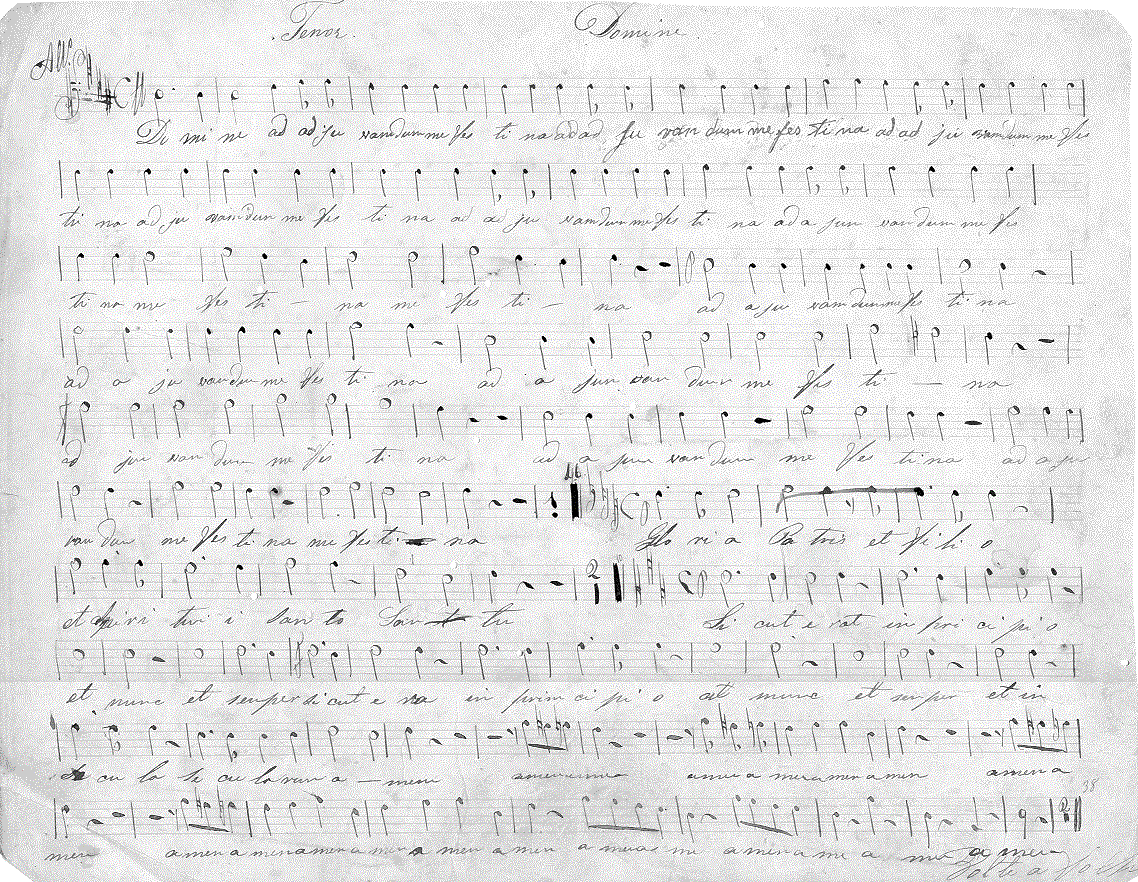 Tenor. Domine.
Allo
Do mi ne ad adju vandum me fes ti na ad ad ju van dum me fes ti na ad ad ju vandum me fes
ti na ad ju vamdum me fes ti na ad ad ju vamdum me fes ti na ad a jun vandum me fes
ti na me fes ti - na me fes ti - na ad a ju vamdum me fes ti na
ad a ju vandum me fes ti na ad a jun van dum me fes ti - na
ad ju van dum me fes ti na ad a jun van dum me fes ti na ad a ju
van dum me fes ti na me fes ti na Glo ri a Pa tris et fi li o
et spiri tui i San to San tu Si cut e rat in pri ci pi o
et nunc et semper si cut e ra in prim ci pi o et nunc et semper et in
cu la se cu lorum a - men amen amen a men a men a men amen a
men amen a men amen a men a men a men a men a me a amen
38
Volte a folha